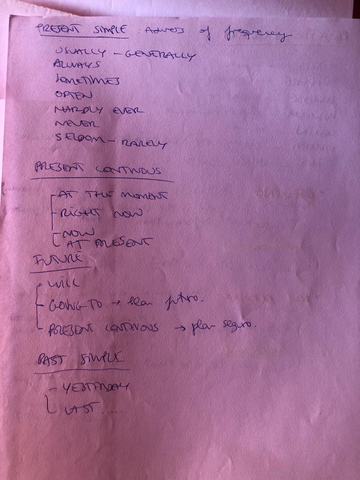 PRESENT SIMPLE Adverbs of frequency
USUALLY - GENERALLY
ALWAYS
SOMETIMES
OFTEN
HARDLY EVER
NEVER
SELDOM - RARELY
PRESENT CONTINOUS
AT THE MOMENT
RIGHT NOW
NOW
AT PRESENT
FUTURE
WILL
GOING TO → plan futuro.
PRESENT CONTINOUS → plan seguro.
PAST SIMPLE
- YESTERDAY
LAST ....